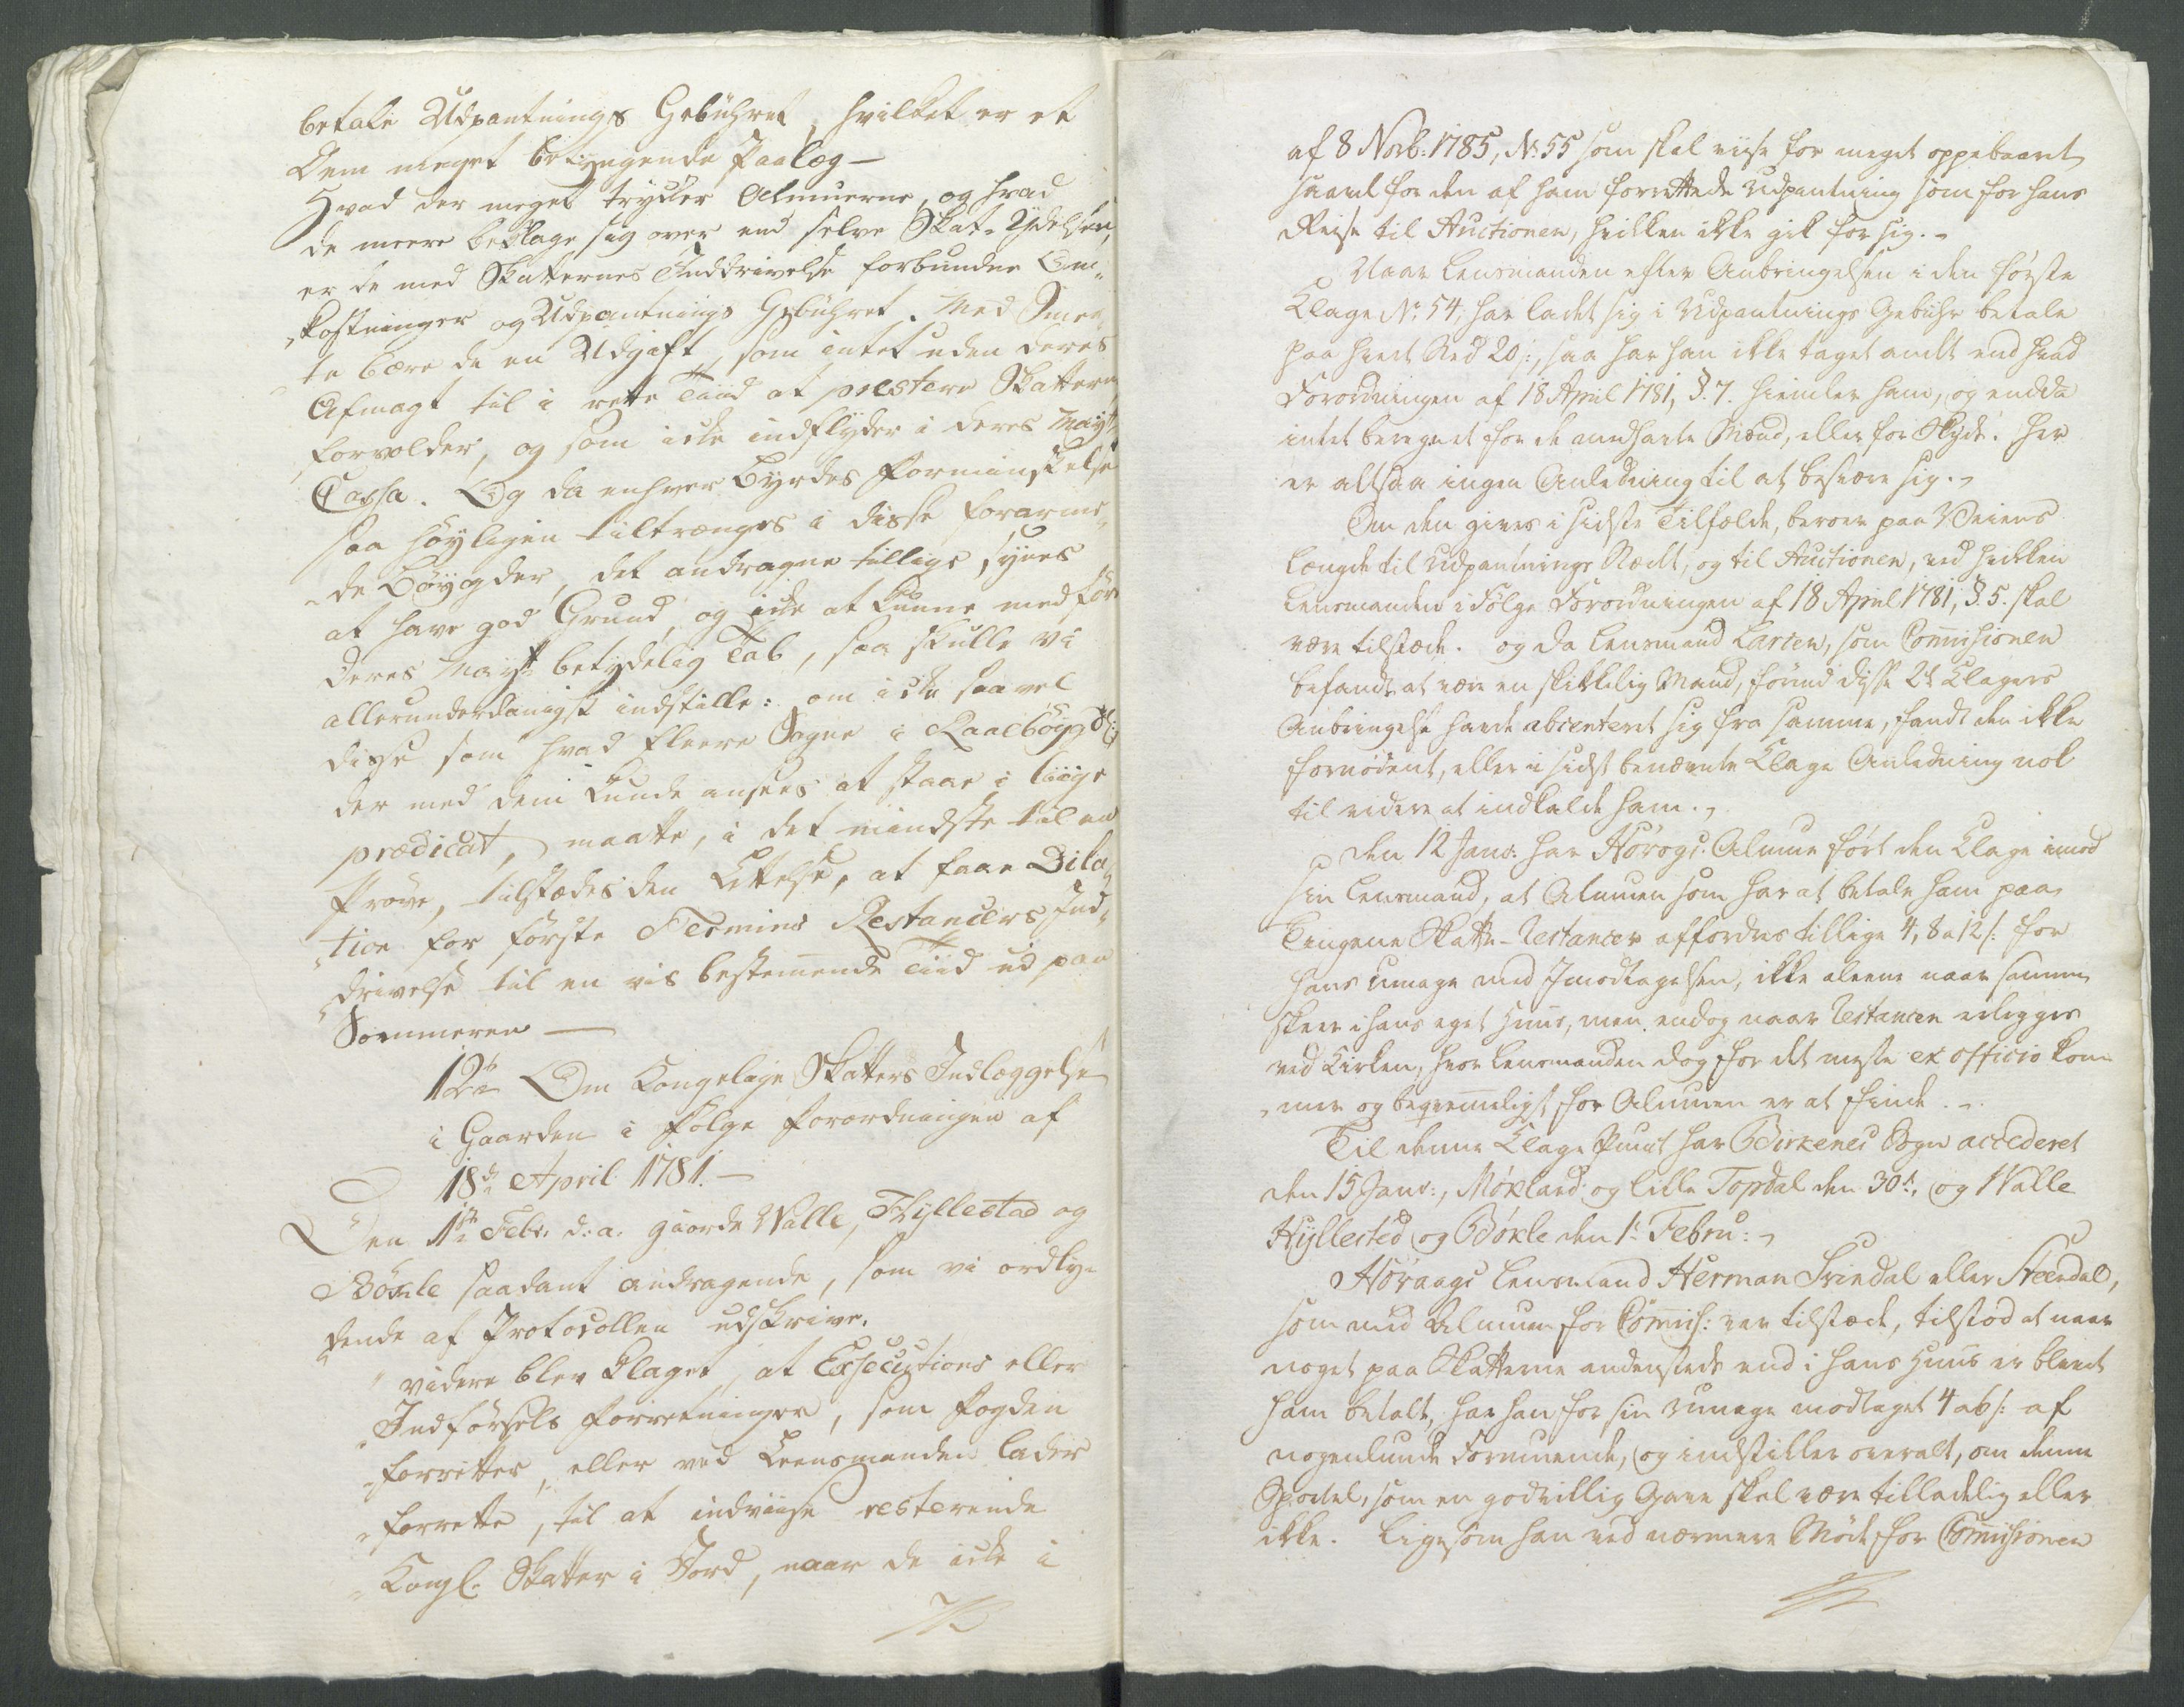 betale Udpantnings Gebühret, hvilket er et
Dem meget betyngende Paalæg —
Hvad der meget trykker Almuerne, og hvad
de meere beklage sig over end selve Skat-Ydelsen,
er de med Skatternes Inddrivelse forbundne Om-
kostninger og Udpantnings Gebühret. Med Smer-
te bære de en Udgift, som intet uden deres
Afmagt til i rette Tiid at præstere Skatterne
forvolder, og som icke indflyder i Deres Mayts
Cassa. Og da enhver Byrdes Formindskelse
saa höyligen tiltrænges i disse forarme-
de Böygder, det andragne tillige synes
at have god Grund, og icke at kunne medföre
Deres Mayts betydelig Tab, saa skulle vi
allerunderdanigst indstille: om icke saavel
disse som hvad fleere Sogne i Raaböygde:
der med dem kunde ansees at staae i liige
prædicat, maatte, i det mindste til en
Pröve, tilstædes den Lettelse, at faae Dila-
tion for förste Termins Restancers Ind-
drivelse til en vis bestemmende Tiid ud paa
Sommeren —
12te Om Kongelige Skatters Indlæggelse
i Gaarden i Fölge Forordningen af
18de April 1781. —
Den 1ste Febr. d: a. giorde Walle, Hyllestad og
Böxle saadant andragende, som vi ordly-
dende af Protocollen udskrive.
" videre blev klaget, at Executions eller
" Indförsels Forretninger, som Fogden
" forretter, eller ved Leensmanden lader
" forrette, til at indviise resterende
" Kongl. Skatter i Jord, naar de icke i
af 8 Novb: 1785, No 55 som skal viise for meget oppebaaret
saavel for den af ham forrettede Udpantning som for hans
Reise til Auctionen, hvilken ikke gik for sig. –
Naar Lensmanden efter Anbringelsen i den første
Klage No 54, har ladet sig i Udpantnings Gebühr betale
paa hvert Sted 20 s:, saa har han ikke taget andet end hvad
Forordningen af 18 April 1781, §. 7. hiemler ham, og endda
intet beregnet for de medhavte Mænd, eller for Skyds. Her
er altsaa ingen Anledning til at besvære sig. –
Om den gives i sidste Tilfælde, beroer paa Veiens
Længde til Udpantnings Stedet, og til Auctionen, ved hvilken
Lensmanden i Følge Forordningen af 18 April 1781, §. 5. skal
være tilstæde. og da Lensmand Larsen, som Commissionen
befandt at være en skikkelig Mand, förend disse 2de Klagers
Anbringelse havde absenteret sig fra samme, fandt den ikke
fornødent, eller i sidst benævnte Klage Anledning nok
til videre at indkalde ham. –
Den 12 Janv: har Hörogs Almue fört den Klage imod
sin Lensmand, at Almuen som har at betale ham paa
Tingene Skatte-Restancer affordres tillige 4, 8 a 12 s: for
hans Umage med Imodtagelsen, ikke aleene naar samme
skeer i hans eget Huus, men endog naar Restancen erlægges
ved Kirken, hvor Lensmanden dog for det meste ex officio kom-
mer og beqvemmeligst for Almuen er at finde. –
Til denne Klage Punct har Birkenes Sogn accederet
den 15 Janv:, Møxland og lille Topdal den 30te, og Walle
Hyllested og Bøxle den 1te Febru: –
Höraags Lensmand Herman Svindal eller Steendal,
som med Almuen for Commiss: var tilstæde, tilstod at naar
noget paa Skatterne andenstæds end i hans Huus er blevet
ham betalt, har han for sin Umage modtaget 4 a 6 s: af
nogenlunde Formuende, og indstiller overalt, om denne
Sportel, som en godvillig Gave skal være tilladelig eller
ikke. Ligesom han ved nærmere Møde for Commissionen